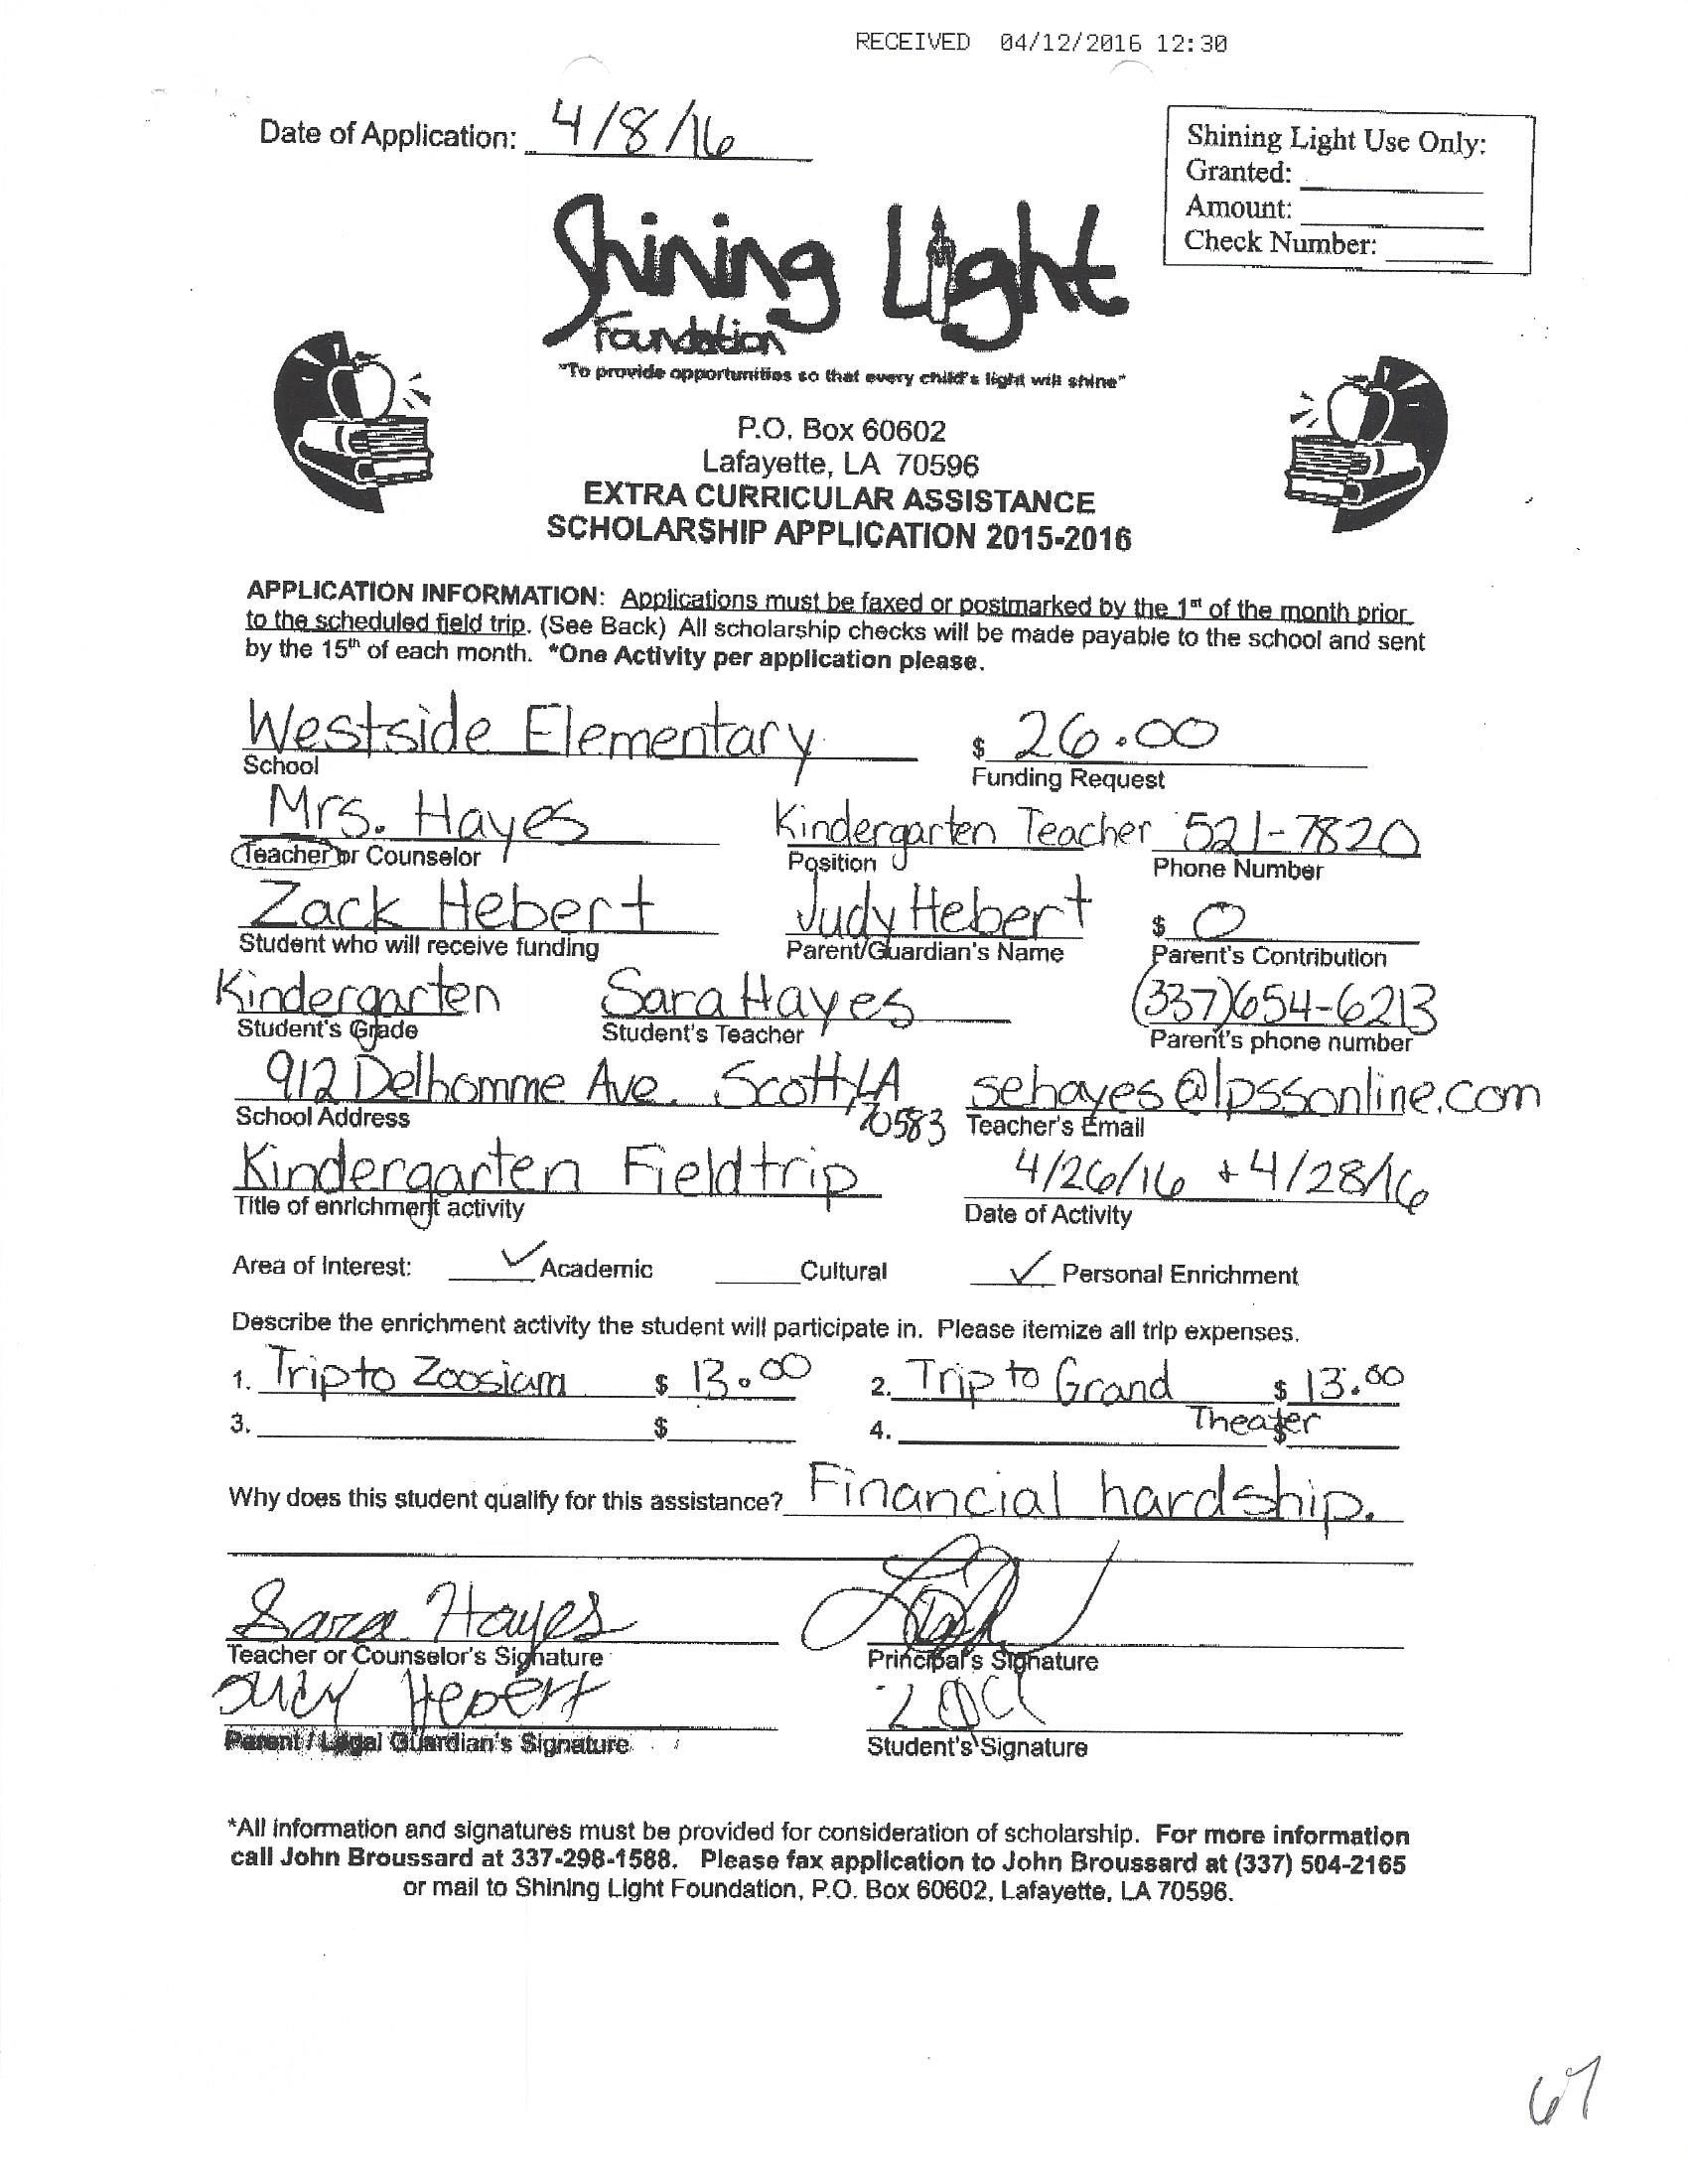 RECEIVED 04/12/2016 12:30
Date of Application: 4/8/16
Shining Light Use Only:
Granted:
Amount:
Check Number:
Shining Light
Foundation
"To provide opportunities so that every child's light will shine"
P.O. Box 60602
Lafayette, LA 70596
EXTRA CURRICULAR ASSISTANCE
SCHOLARSHIP APPLICATION 2015-2016
APPLICATION INFORMATION: Applications must be faxed or postmarked by the 1st of the month prior
to the scheduled field trip. (See Back) All scholarship checks will be made payable to the school and sent
by the 15th of each month. *One Activity per application please.
Westside Elementary $ 26.00
School Funding Request
Mrs. Hayes Kindergarten Teacher 521-7820
Teacher or Counselor Position Phone Number
Zack Hebert Judy Hebert $ 0
Student who will receive funding Parent/Guardian's Name Parent's Contribution
Kindergarten Sara Hayes (337)654-6213
Student's Grade Student's Teacher Parent's phone number
912 Delhomme Ave. Scott, LA 70583 sehayes@lpssonline.com
School Address Teacher's Email
Kindergarten Fieldtrip 4/26/16 + 4/28/16
Title of enrichment activity Date of Activity
Area of Interest: ✓ Academic Cultural ✓ Personal Enrichment
Describe the enrichment activity the student will participate in. Please itemize all trip expenses.
1. Trip to Zoosiana $ 13.00 2. Trip to Grand Theater $ 13.00
3. $ 4. $
Why does this student qualify for this assistance? Financial hardship.
Sara Hayes
Teacher or Counselor's Signature Principal's Signature
Judy Hebert Zack
Parent / Legal Guardian's Signature Student's Signature
*All information and signatures must be provided for consideration of scholarship. For more information
call John Broussard at 337-298-1588. Please fax application to John Broussard at (337) 504-2165
or mail to Shining Light Foundation, P.O. Box 60602, Lafayette, LA 70596.